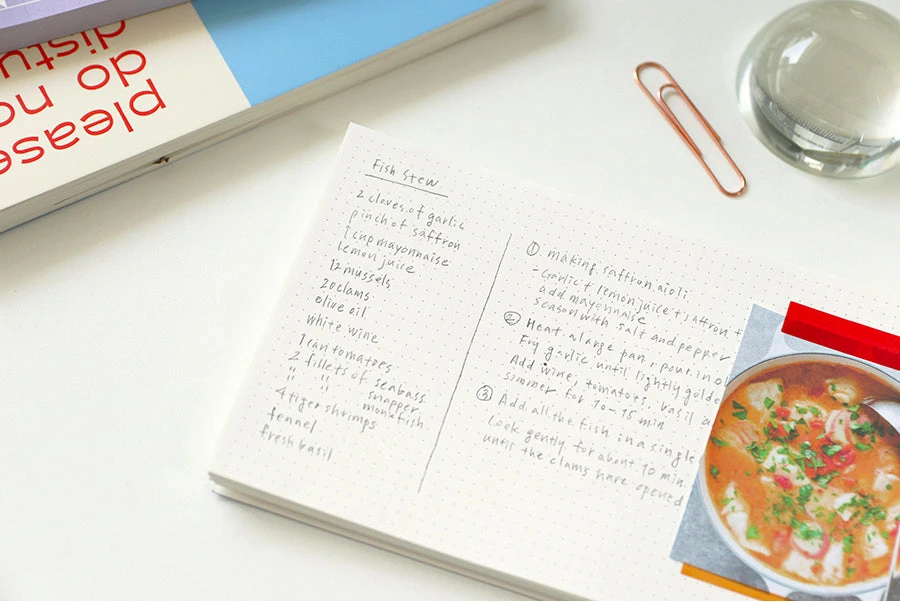 please
do no
distu
Fish stew
2 cloves of garlic
pinch of saffron
1 cup mayonnaise
lemon juice
12 mussels
20 clams
olive oil
white wine
1 can tomatoes
2 fillets of seabass
" " snapper
" " monkfish
4 tiger shrimps
fennel
fresh basil
① making saffron aioli
- Garlic + lemon juice + saffron +
add mayonnaise
season with salt and pepper
② Heat a large pan, pour in
Fry garlic until lightly golde
Add wine, tomatots, basil a
simmer for 10-15 min
③ Add all the fish in a single
Cook gently for about 10 min.
until the clams have opened